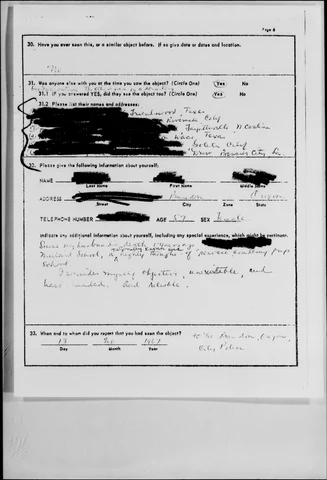 Page 6
30. Have you ever seen this, or a similar object before. If so give date or dates and location.
No
31. Was anyone else with you at the time you saw the object? (Circle One) Yes No
31.1 If you answered YES, did they see the object too? (Circle One) Yes No
31.2 Please list their names and addresses:
Friendswood Texas
Riverside Calif
Fayetteville N Carolina
Waco Texas
Goleta Calif
32. Please give the following information about yourself:
NAME
Last Name First Name Middle Name
ADDRESS Oregon
Street City Zone State
TELEPHONE NUMBER AGE 57 SEX Female
Indicate any additional information about yourself, including any special experience, which might be pertinent.
Since my husband's death
School, a highly thought of service academy prep
school.
I consider myself objective, and
level headed. And reliable.
33. When and to whom did you report that you had seen the object?
13 1967
Day Month Year
City Police